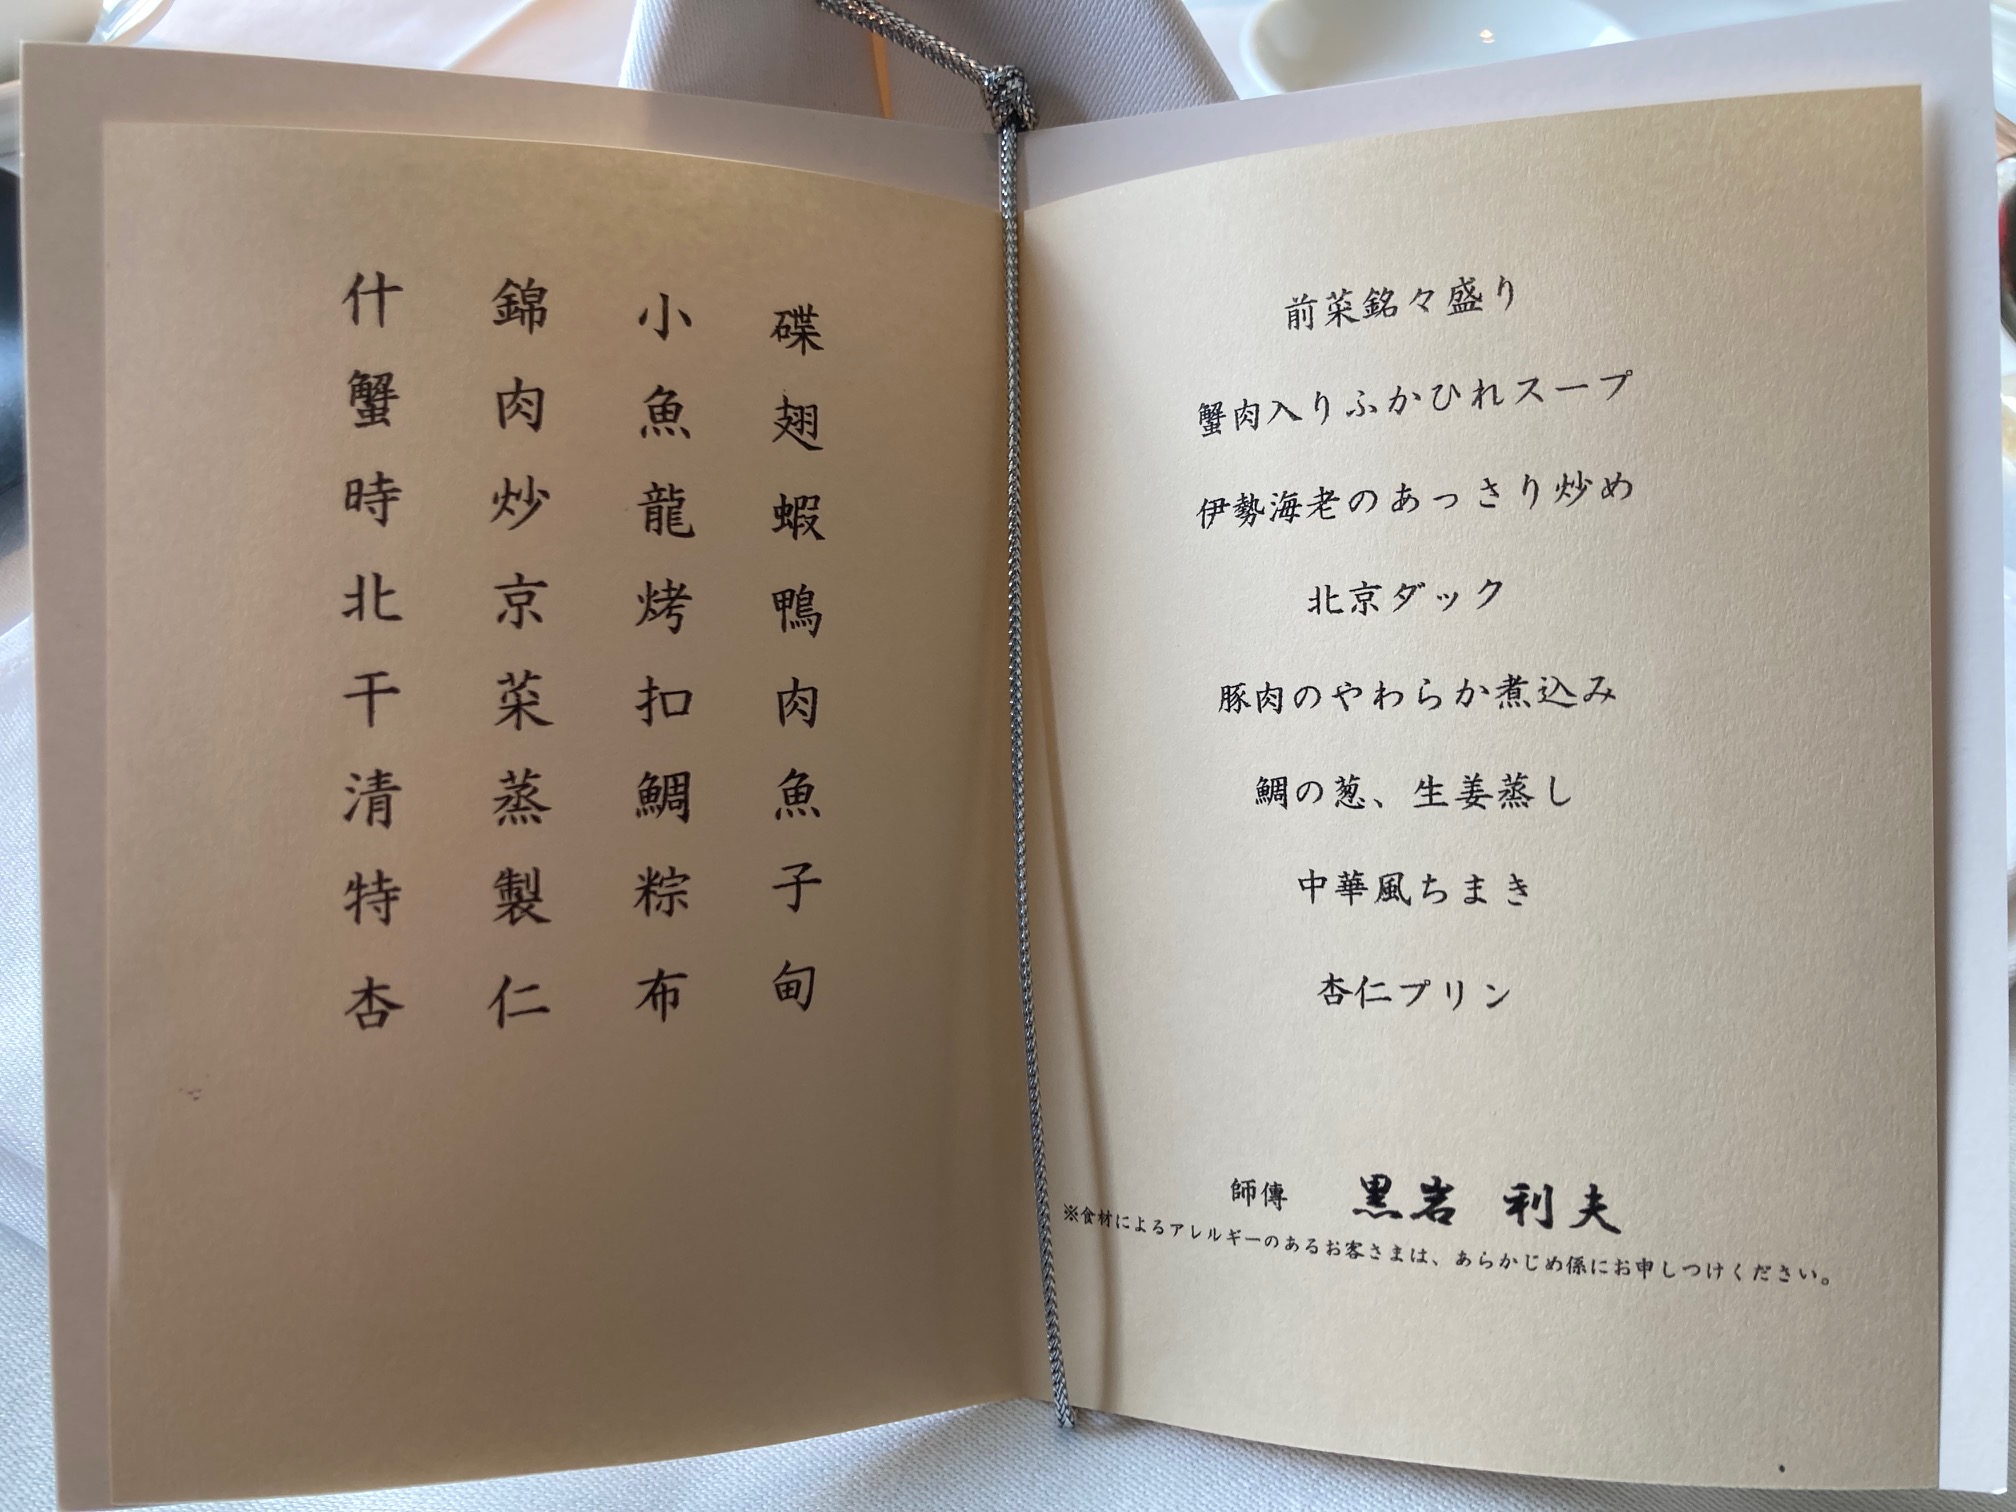 什錦小碟
蟹肉魚翅
時炒龍蝦
北京烤鴨
干菜扣肉
清蒸鯛魚
特製粽子
杏仁布甸
前菜銘々盛り
蟹肉入りふかひれスープ
伊勢海老のあっさり炒め
北京ダック
豚肉のやわらか煮込み
鯛の葱、生姜蒸し
中華風ちまき
杏仁プリン
師傳 黒岩 利夫
※食材によるアレルギーのあるお客さまは、あらかじめ係にお申しつけください。